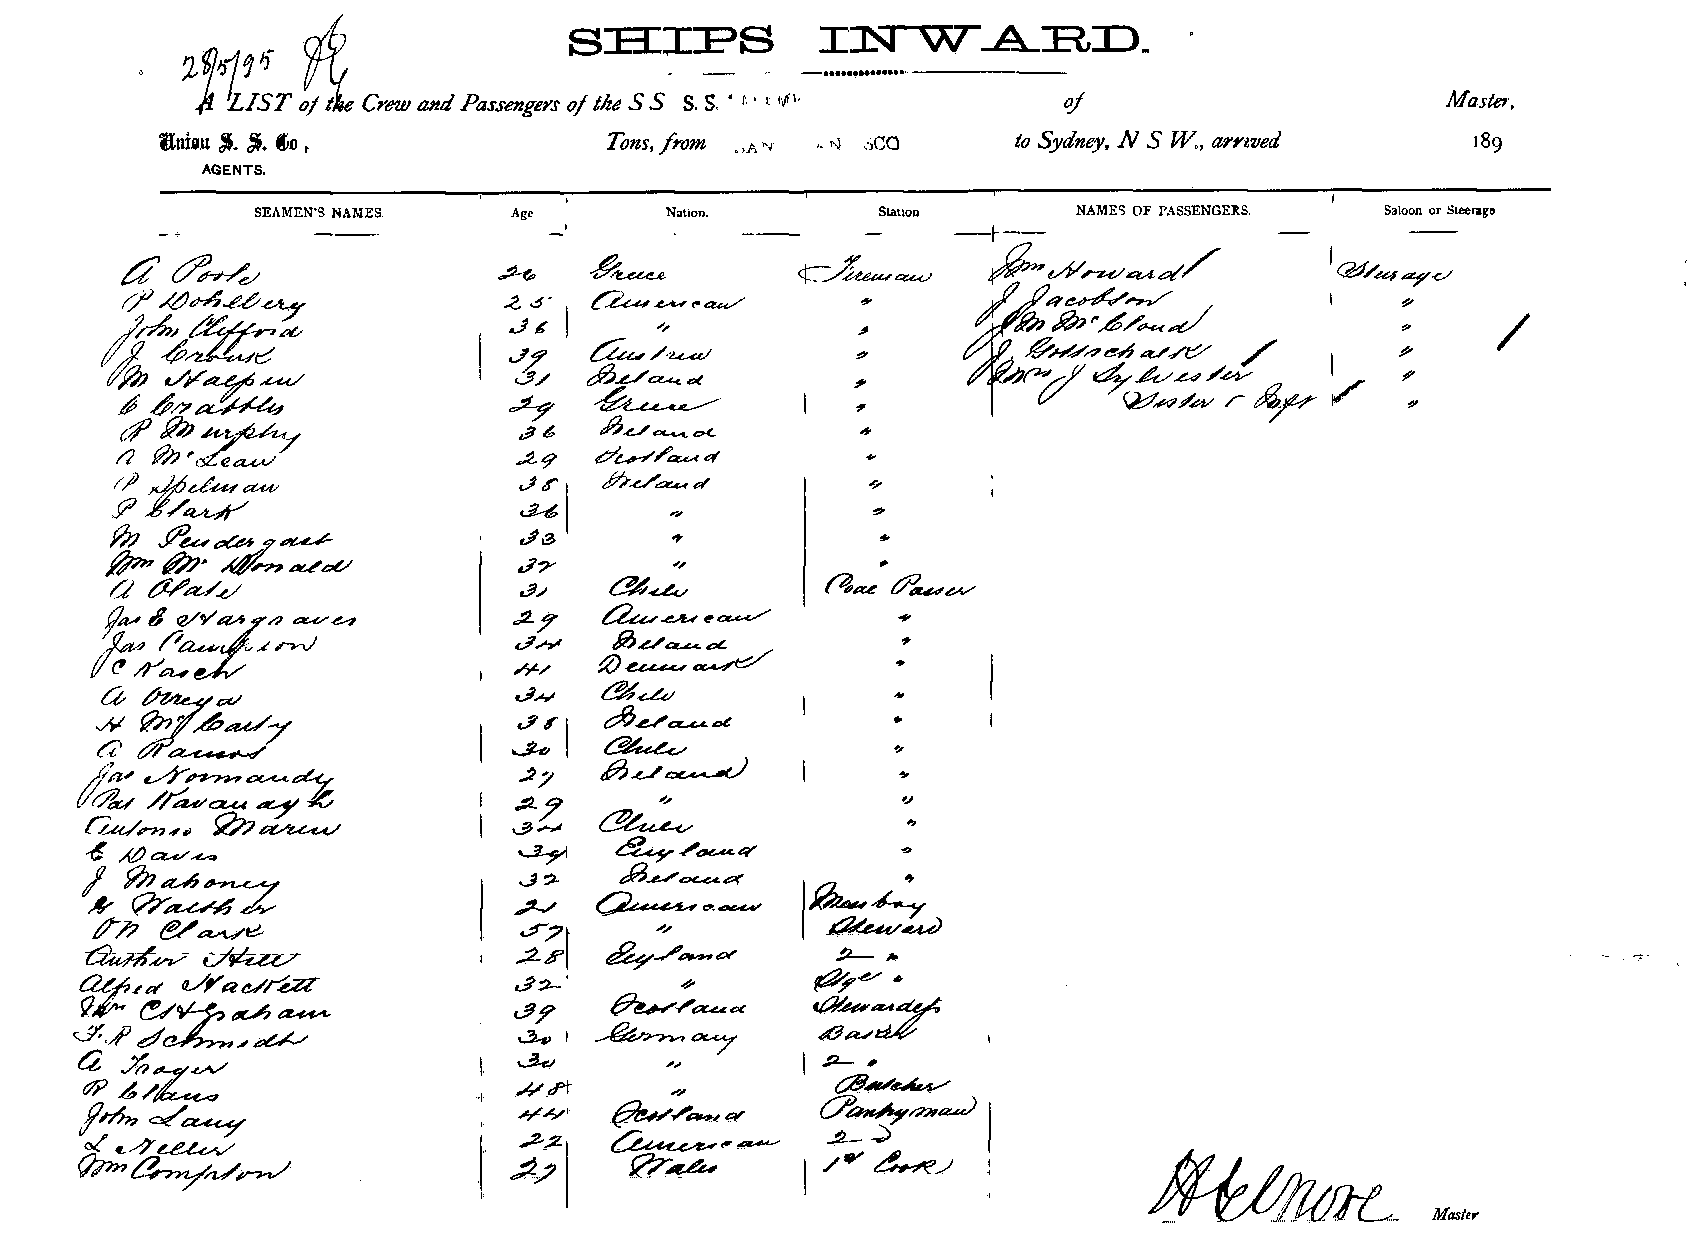 SHIPS INWARD.
28/5/95
A LIST of the Crew and Passengers of the S S S. S. of Master,
Union S. S. Co, Tons, from SCO to Sydney, N S W., arrived 189
AGENTS.
SEAMEN'S NAMES. Age Nation. Station NAMES OF PASSENGERS. Saloon or Steerage
A Poole 26 Greece Fireman Wm Howard Sturage
P Dohlberg 25 American " J Jacobson "
John Clifford 36 " " M McCloud "
J Cronk 39 Austria " J Gottschalk "
M Halpin 31 Ireland " Mrs J Sylvester "
C Crabbles 29 Greece " Sister & Inft "
P Murphy 36 Ireland "
A McLean 29 Scotland "
P Spelman 38 Ireland "
P Clark 36 " "
M Pendergast 33 " "
Wm McDonald 32 " "
A Olate 31 Chile Coal Passer
Jas E Hargraves 29 American "
Jas Campion 34 Ireland "
C Kasch 41 Denmark "
A 34 Chile "
H McCarty 38 Ireland "
A Ramos 30 Chile "
Jas Normandy 27 Ireland "
Pat Kavanagh 29 " "
Antonio Marin 34 Chile "
E Davis 39 England "
J Mahoney 32 Ireland "
Walther 21 American Messboy
Clark 57 " Steward
Arthur Hill 28 England 2 "
Alfred Hackett 32 " Stge "
C H Graham 39 Scotland Stewardess
F. R Schmidt 30 Germany Baker
A Trager 30 " 2 "
P Claus 48 " Butcher
John Lang 44 Scotland Pantryman
L Neller 22 American 2 "
Wm Compton 27 Wales 1st Cook
Master